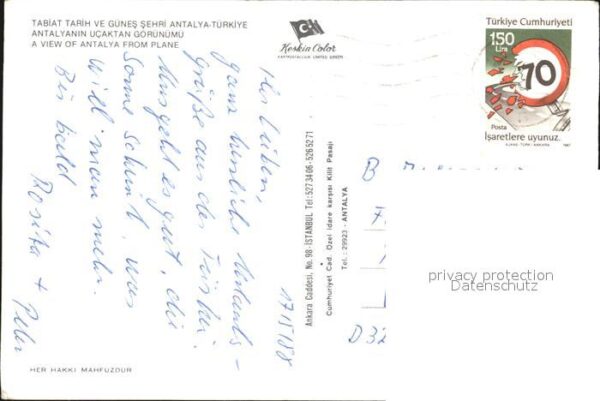 TABİAT TARİH VE GÜNEŞ ŞEHRİ ANTALYA-TÜRKİYE
ANTALYANIN UÇAKTAN GÖRÜNÜMÜ
A VIEW OF ANTALYA FROM PLANE
Keskin Color
KARTPOSTALCILIK LIMITED ŞİRKETİ
Türkiye Cumhuriyeti
150
Lira
70
Posta
İşaretlere uyunuz.
AJANS-TÜRK / ANKARA 1987
17/5/88
Ihr Lieben,
ganz herzliche Urlaubs-
grüße aus der Türkei.
Uns geht es gut, die
Sonne scheint, was
will man mehr.
Bis bald
Rosita + Peter
Ankara Caddesi, No. 98 - İSTANBUL Tel: 5273406 - 5265271
Cumhuriyet Cad. Özel idare karşısı Kilit Pasajı
Tel.: 29923 - ANTALYA
B
D32
privacy protection
Datenschutz
HER HAKKI MAHFUZDUR